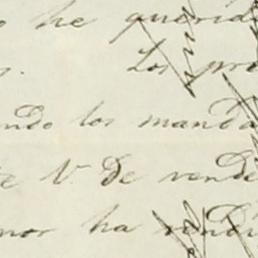 o he querid
s. Los pre
ndo los manda
te V. De vende
nor ha vendi